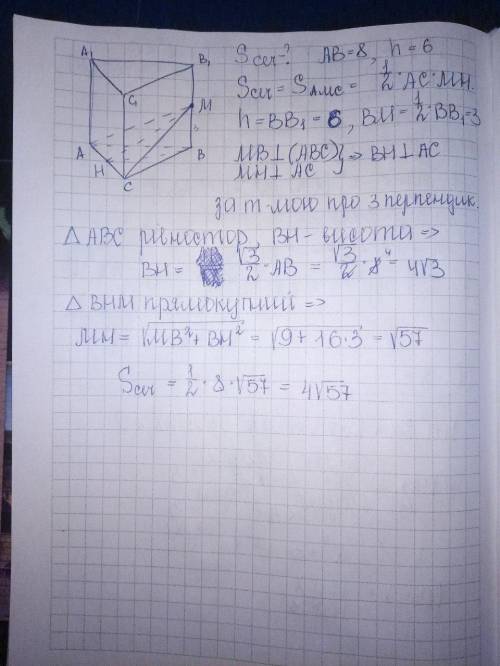 A₁
B₁
C₁
M
A
B
H
C
Sсег-? AB=8, h=6
Sсег = S_AMC = 1/2·AC·MH.
h=BB₁=6, BM=1/2·BB₁=3
MB⊥(ABC)
MH⊥AC } => BH⊥AC
за т-мою про 3 перпендик.
△ABC рівностор, BH-висота =>
BH = √3/2·AB = √3/2·8⁴ = 4√3
△BHM прямокутний =>
MH=√MB²+BH² = √9+16·3 = √57
Sсег = 1/2·8·√57 = 4√57